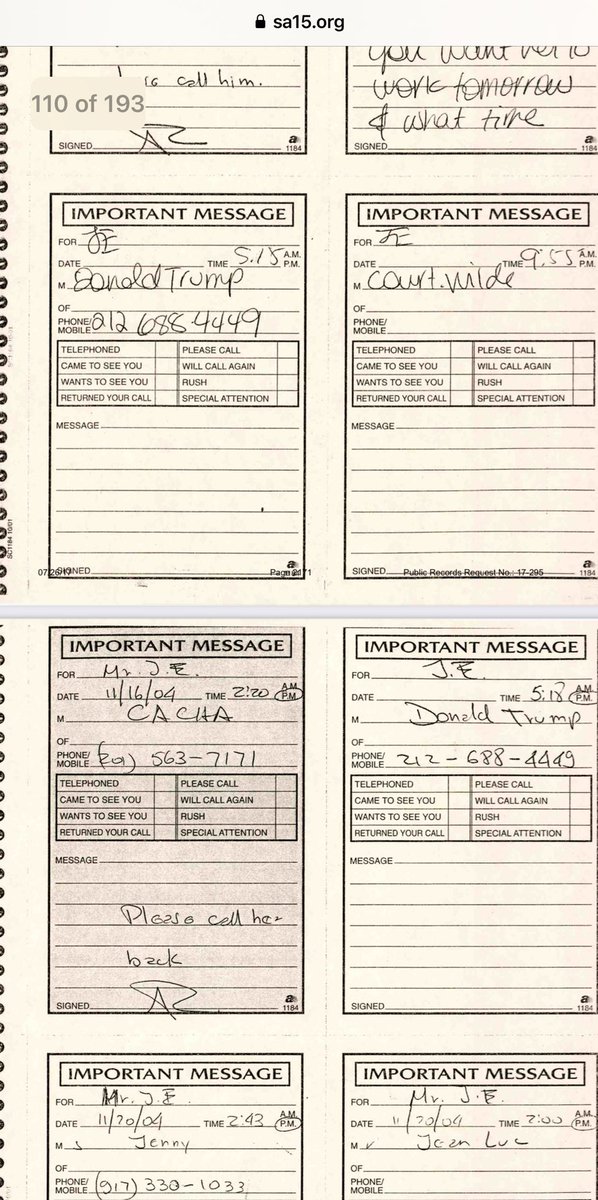 sa15.org
110 of 193
call him.
SIGNED
1184
you want her to
work tomorrow
& what time
SIGNED
1184
IMPORTANT MESSAGE
FOR JE
DATE TIME 5:15 A.M. P.M.
M Donald Trump
OF
PHONE/ MOBILE 212 688-4449
TELEPHONED PLEASE CALL
CAME TO SEE YOU WILL CALL AGAIN
WANTS TO SEE YOU RUSH
RETURNED YOUR CALL SPECIAL ATTENTION
MESSAGE
SIGNED
07/26/17
1184
IMPORTANT MESSAGE
FOR JE
DATE TIME 9:55 A.M. P.M.
M
OF
PHONE/ MOBILE
TELEPHONED PLEASE CALL
CAME TO SEE YOU WILL CALL AGAIN
WANTS TO SEE YOU RUSH
RETURNED YOUR CALL SPECIAL ATTENTION
MESSAGE
SIGNED
Public Records Request No.: 17-295
1184
IMPORTANT MESSAGE
FOR Mr. J.E.
DATE 11/16/04 TIME 2:20 A.M. P.M.
M CACHA
OF
PHONE/ MOBILE (201) 563-7171
TELEPHONED PLEASE CALL
CAME TO SEE YOU WILL CALL AGAIN
WANTS TO SEE YOU RUSH
RETURNED YOUR CALL SPECIAL ATTENTION
MESSAGE
Please call her
back
SIGNED
1184
IMPORTANT MESSAGE
FOR J.E.
DATE TIME 5:18 A.M. P.M.
M Donald Trump
OF
PHONE/ MOBILE 212-688-4449
TELEPHONED PLEASE CALL
CAME TO SEE YOU WILL CALL AGAIN
WANTS TO SEE YOU RUSH
RETURNED YOUR CALL SPECIAL ATTENTION
MESSAGE
SIGNED
1184
IMPORTANT MESSAGE
FOR Mr. J.E.
DATE 11/20/04 TIME 2:43 A.M. P.M.
M s Jenny
OF
PHONE/ MOBILE (917) 330-1033
IMPORTANT MESSAGE
FOR Mr. J.E.
DATE 11/20/04 TIME 2:00 A.M. P.M.
M r Jean Luc
OF
PHONE/ MOBILE